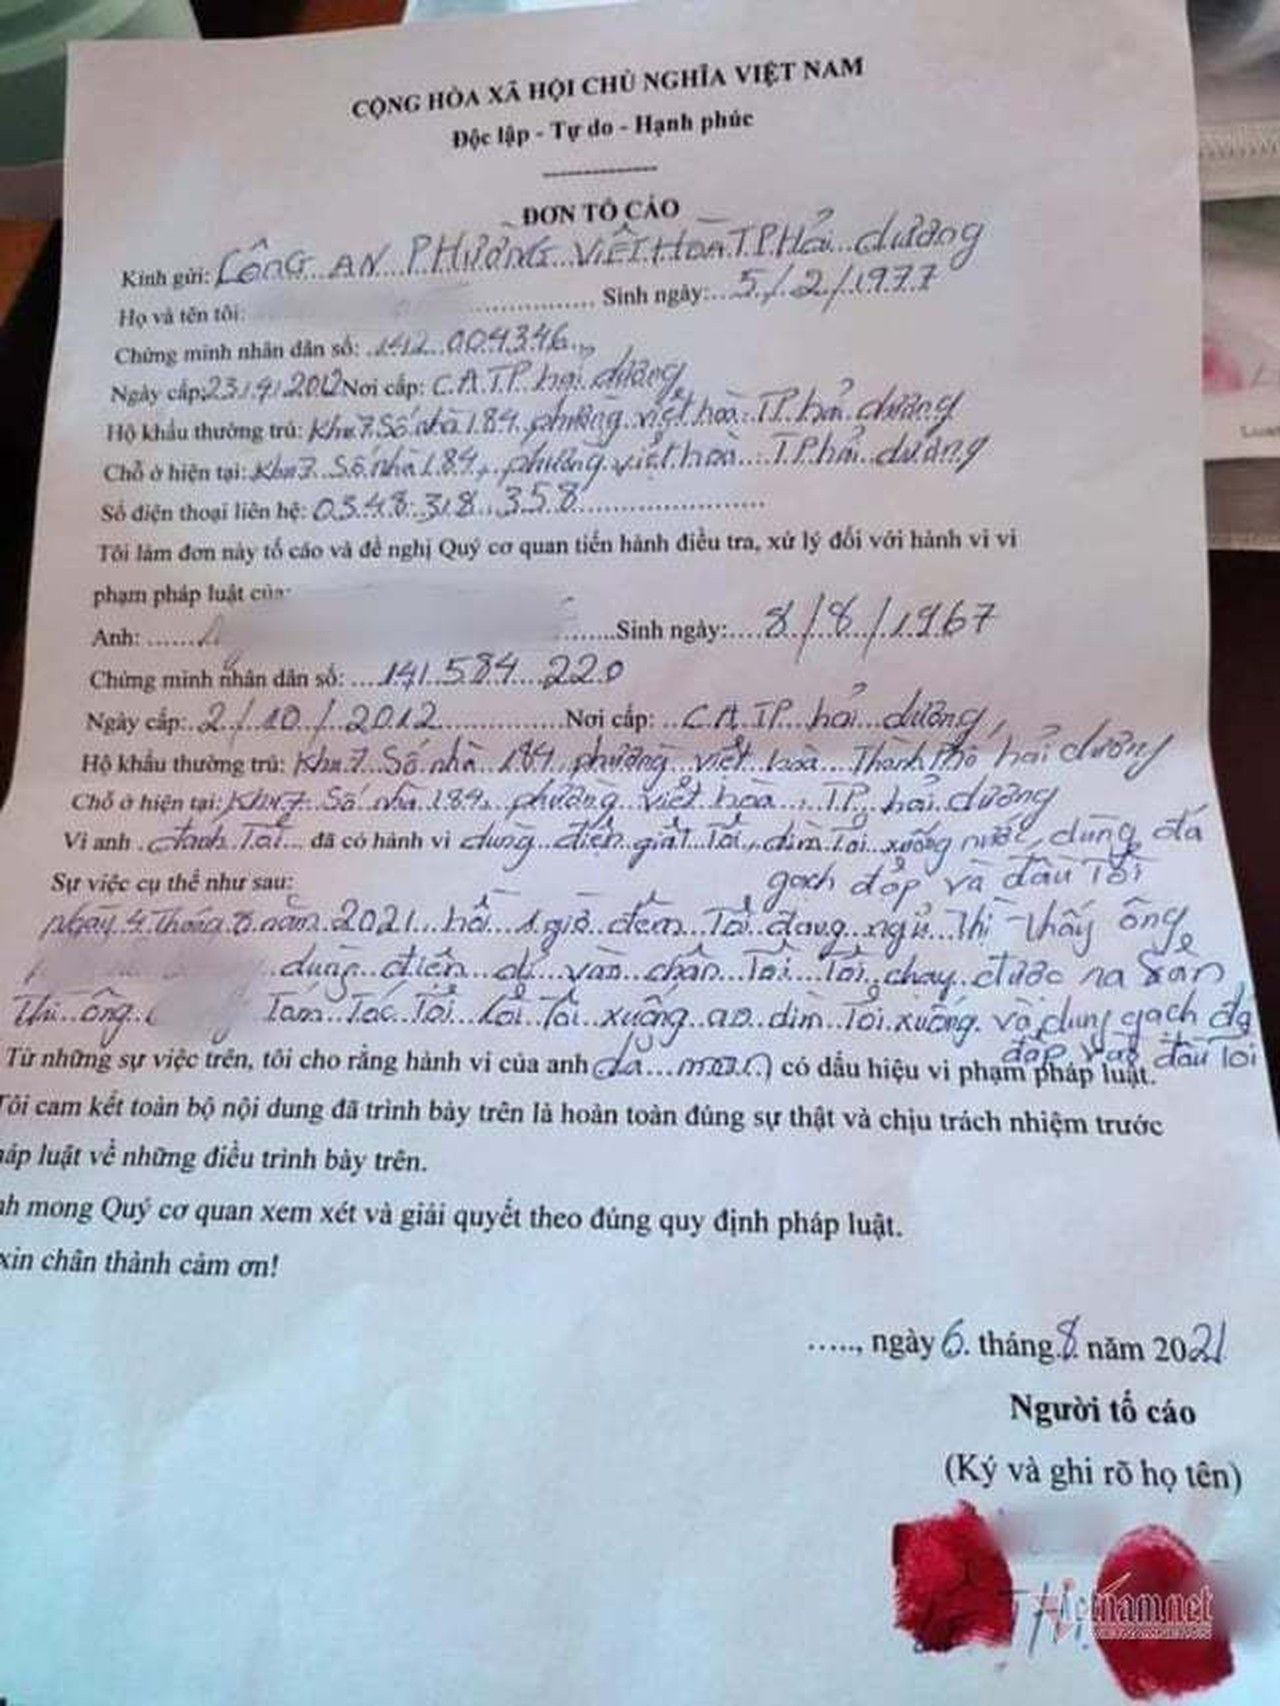 CỘNG HÒA XÃ HỘI CHỦ NGHĨA VIỆT NAM
Độc lập - Tự do - Hạnh phúc
ĐƠN TỐ CÁO
Kính gửi: CÔNG AN PHƯỜNG VIỆT HOÀ TP Hải dương
Họ và tên tôi: Sinh ngày: 5/2/1977
Chứng minh nhân dân số: 142 004346
Ngày cấp: 23/9/2012 Nơi cấp: C.A.TP hải dương
Hộ khẩu thường trú: Khu 7 Số nhà 184, phường việt hoà TP hải dương
Chỗ ở hiện tại: Khu 7 Số nhà 184, phường việt hoà TP hải dương
Số điện thoại liên hệ: 0348 318 358
Tôi làm đơn này tố cáo và đề nghị Quý cơ quan tiến hành điều tra, xử lý đối với hành vi vi
phạm pháp luật của:
Anh: Sinh ngày: 8/8/1967
Chứng minh nhân dân số: 141 584 220
Ngày cấp: 2/10/2012 Nơi cấp: C.A TP hải dương
Hộ khẩu thường trú: Khu 7 Số nhà 184 phường việt hoà Thành Phố hải dương
Chỗ ở hiện tại: Khu 7 Số nhà 184, phường việt hoà, TP, hải dương
Vì anh đánh Tôi đã có hành vi dùng điện giật Tôi, dìm Tôi xuống nước, dùng đá
gạch đập và đầu Tôi
Sự việc cụ thể như sau:
ngày 4 Tháng 8 năm 2021 hồi 1 giờ đêm Tôi đang ngủ Thì Thấy ông
dùng điện dí vào chân Tôi Tôi chạy được ra sân
Thì ông Tóm Tóc Tôi lôi Tôi xuống ao dìm Tôi xuống và dùng gạch đá
đập vào đầu Tôi
Từ những sự việc trên, tôi cho rằng hành vi của anh dã man có dấu hiệu vi phạm pháp luật.
Tôi cam kết toàn bộ nội dung đã trình bày trên là hoàn toàn đúng sự thật và chịu trách nhiệm trước
áp luật về những điều trình bày trên.
nh mong Quý cơ quan xem xét và giải quyết theo đúng quy định pháp luật.
xin chân thành cảm ơn!
....., ngày 6 tháng 8 năm 2021
Người tố cáo
(Ký và ghi rõ họ tên)
Thi
Vietnamnet
VIETNAMNET.VN